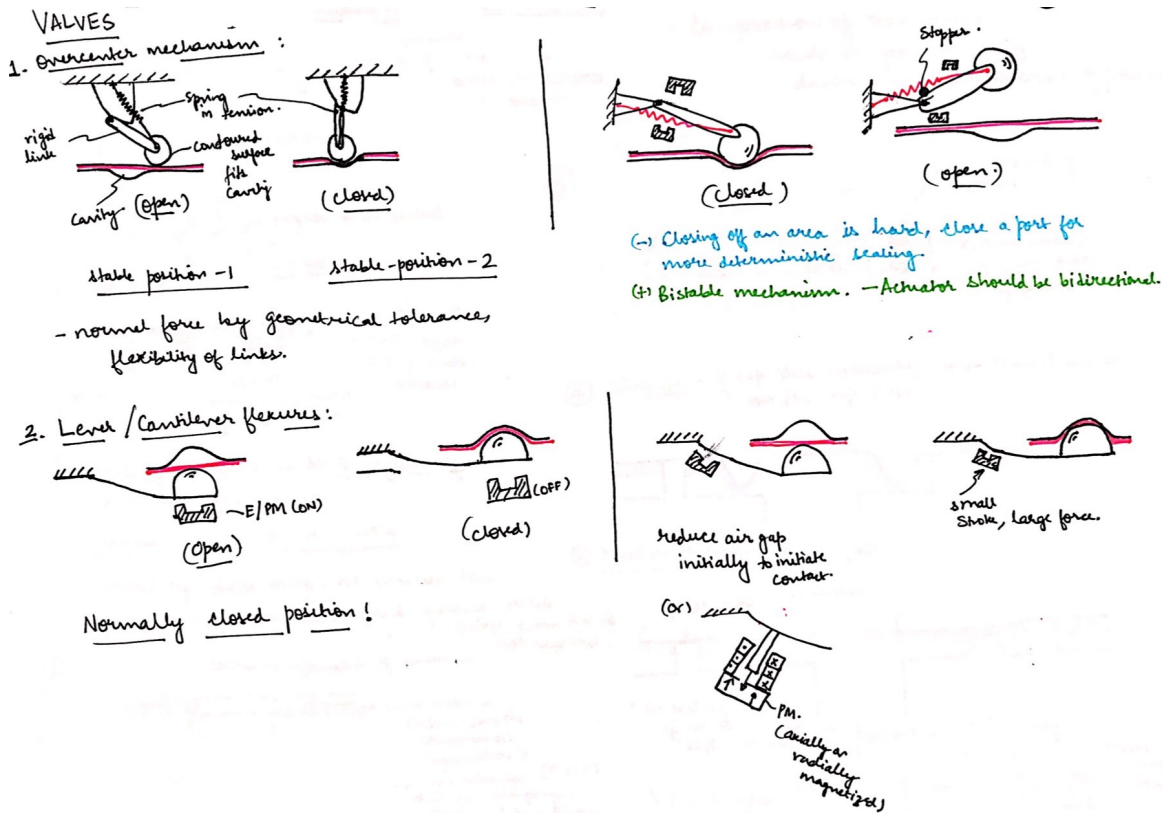 VALVES
1. Overcenter mechanism :
Spring
in tension.
rigid
link
contoured
surface
fits
cavity
cavity
(open)
(closed)
stable position -1
stable-position-2
- normal force by geometrical tolerance,
flexibility of links.
Stopper.
(closed)
(open.)
(-) Closing off an area is hard, close a port for
more deterministic sealing.
(+) Bistable mechanism. - Actuator should be bidirectional.
2. Lever / Cantilever flexures :
E/PM (ON)
(open)
(OFF)
(closed)
Normally closed position !
reduce air gap
initially to initiate
contact.
small
stroke, large force.
(or)
PM.
(axially or
radially
magnetized)